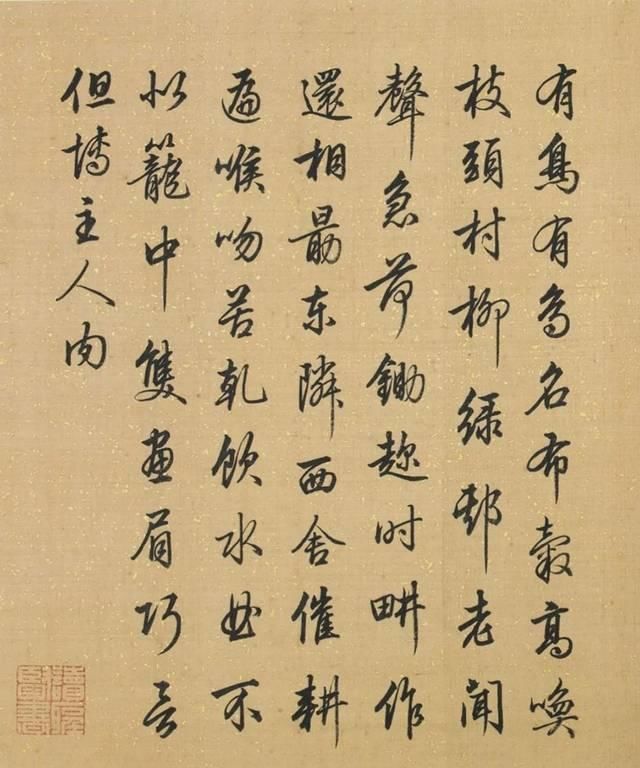 有鳥有鳥名布穀高喚
枝頭村柳綠邨老聞
聲急荷鋤趂時畊作
還相勗東隣西舍催耕
遍喉吻苦乾飲水曲不
似籠中隻畫眉巧言
但博主人肉